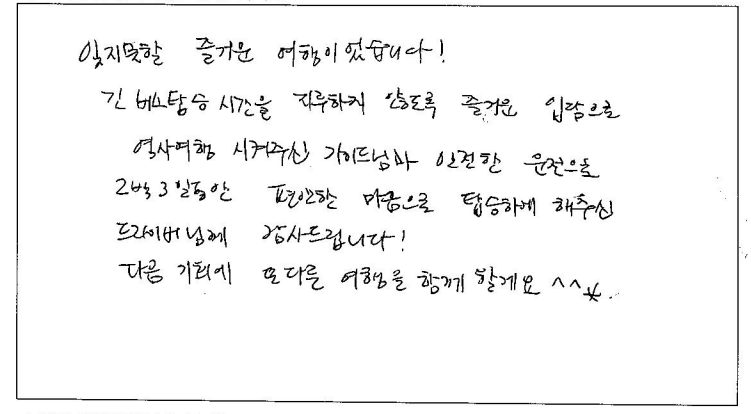 잊지못할 즐거운 여행이었습니다!
긴 버스탑승 시간을 지루하지 않도록 즐거운 입담으로
역사여행 시켜주신 가이드님과 안전한 운전으로
2박3일동안 편안한 마음으로 탑승하게 해주신
드라이버님께 감사드립니다!
다음 기회에 또다른 여행을 함께 할게요 ^^